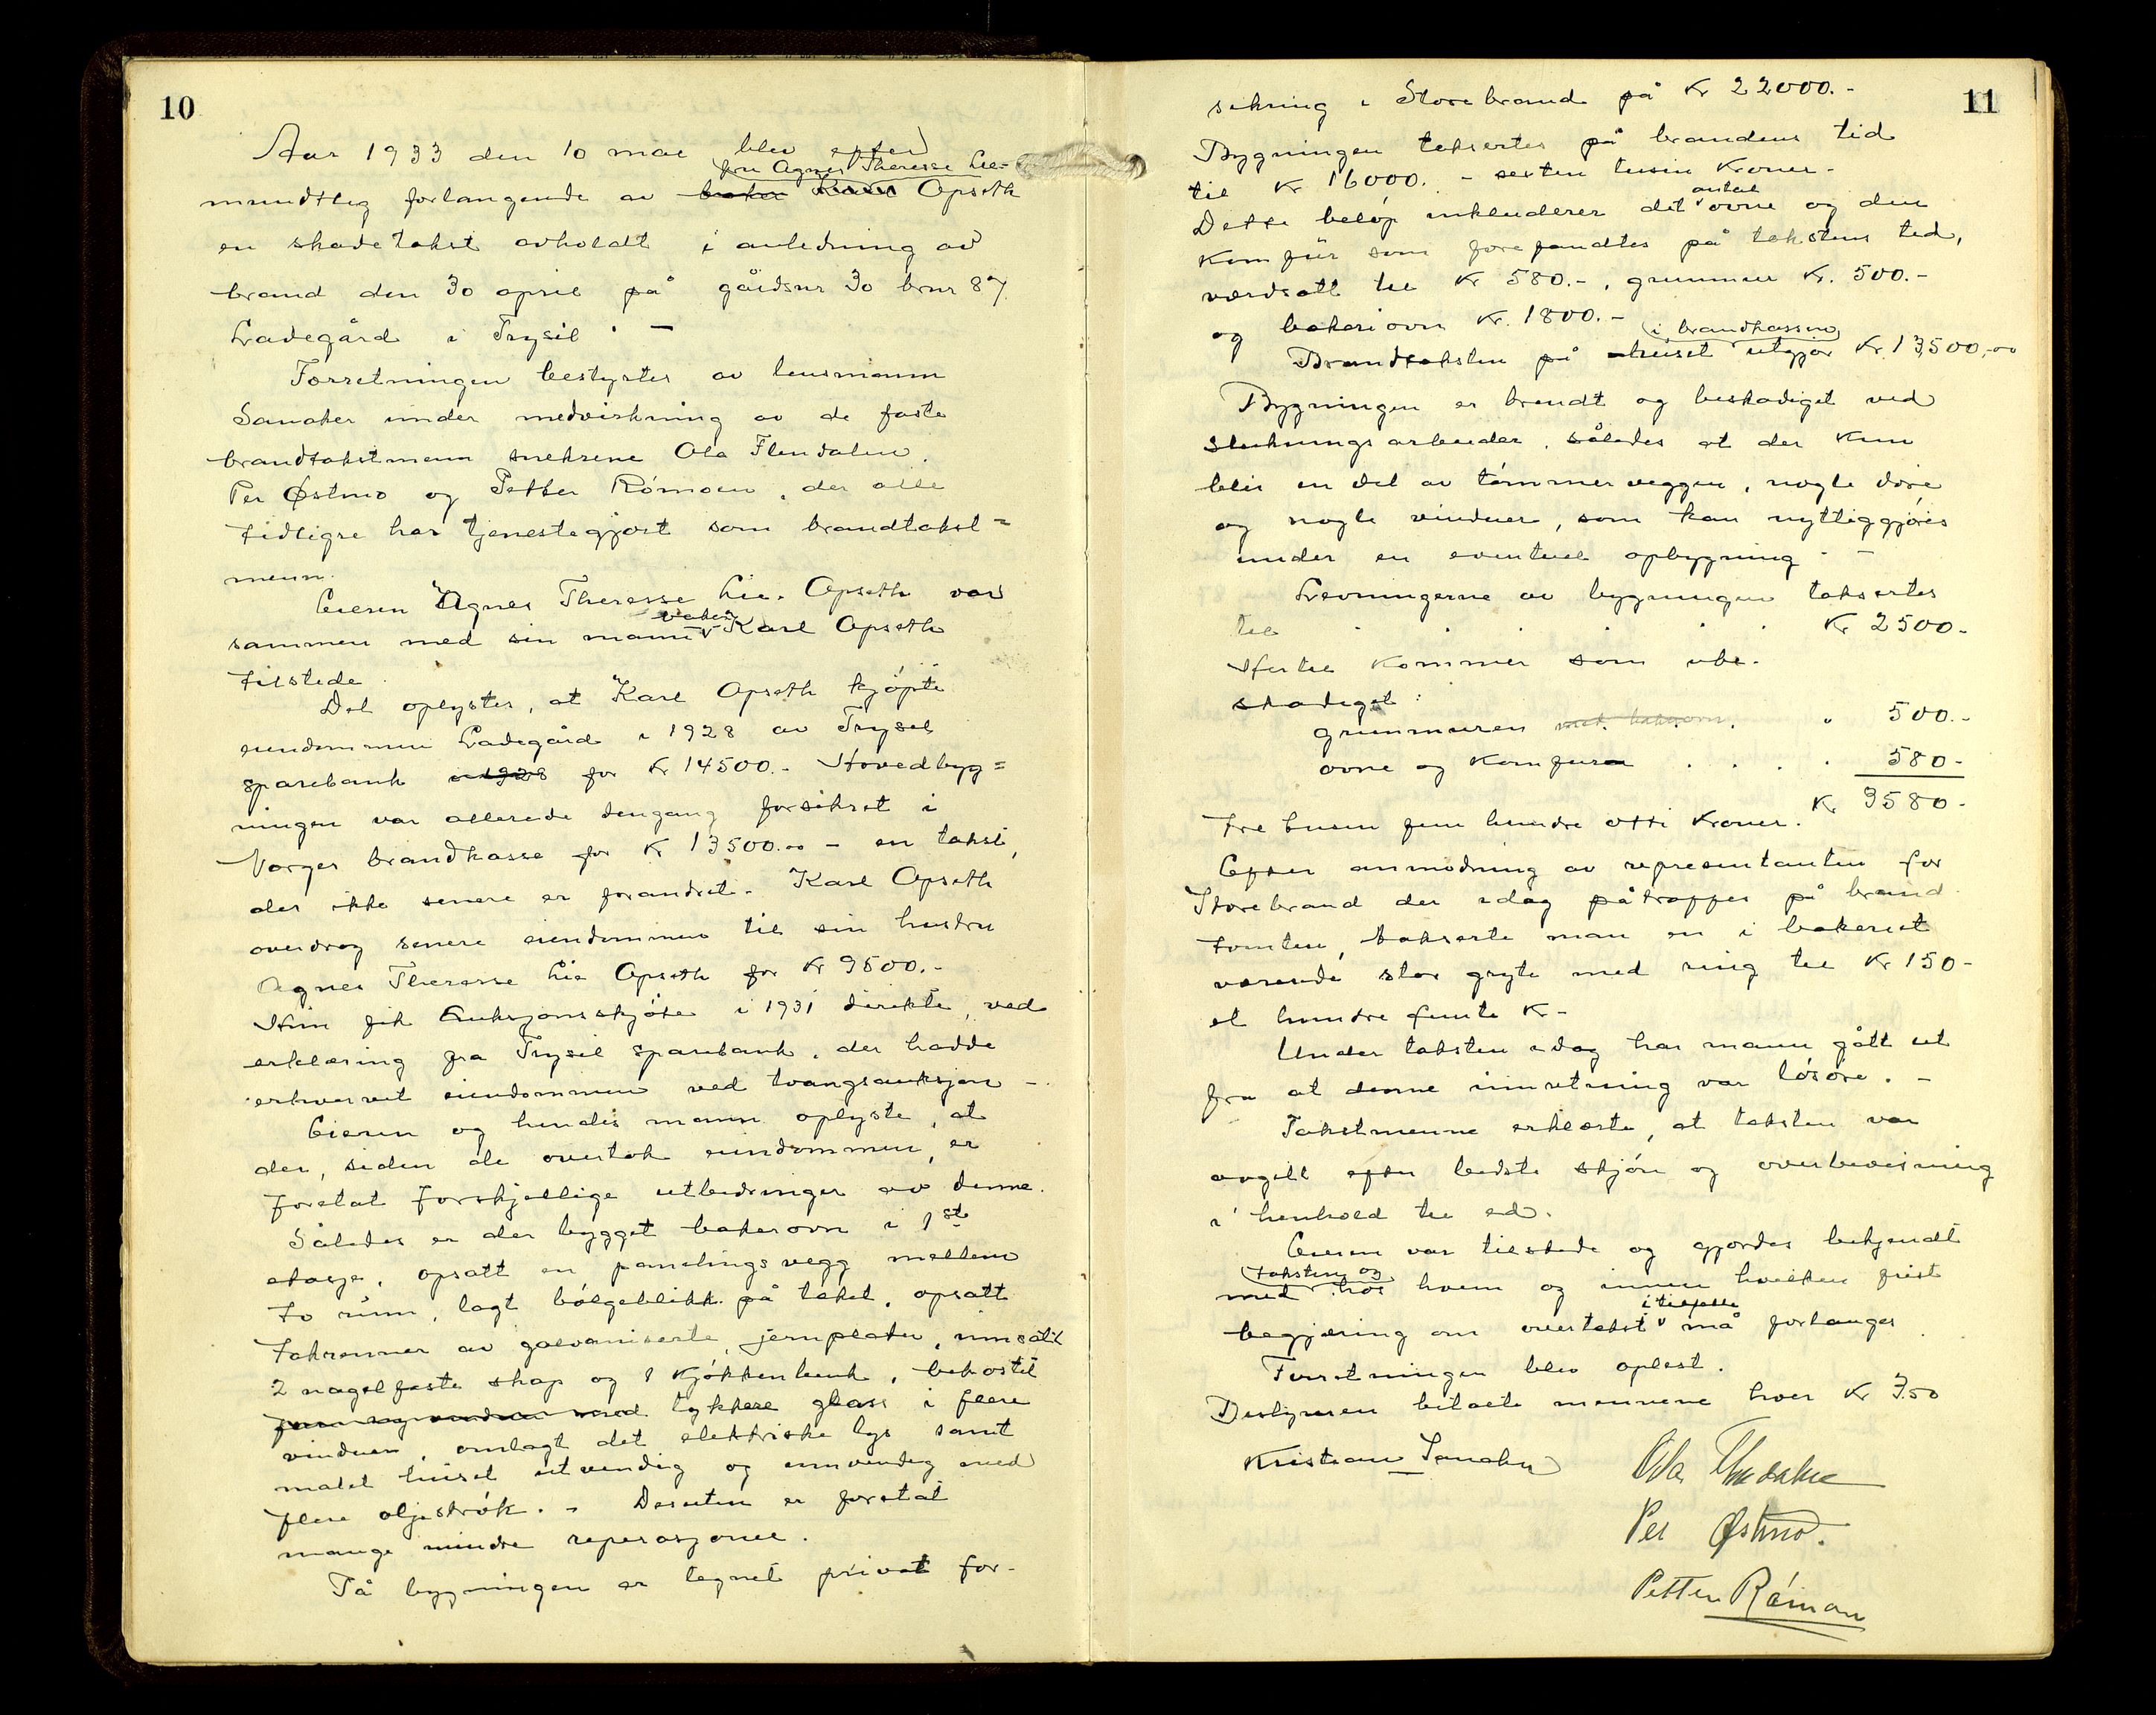 10
Aar 1933 den 10 mai blev efter
fru Agnes Therese Lie-
mundtlig forlangende av baker Karl Opseth
en skadetakst avholdt i anledning av
brand den 30 april på gårdsnr 30 brnr 87
Ladegård i Trysil. —
Forretningen bestyrtes av lensmann
Sanaker under medvirkning av de faste
brandtakstmenn snekrene Ola Flendalen,
Per Østmo og Petter Rømoen, der alle
tidligre har tjenestegjort som brandtakst=
menn.
Eieren Agnes Therese Lie-Opseth var
baker
sammen med sin mann Karl Opseth
tilstede.
Det oplystes, at Karl Opseth kjøpte
eiendommen Ladegård i 1928 av Trysil
sparebank i 1928 for Kr 14500.- Hovedbyg=
ningen var allerede dengang forsikret i
Norges brandkasse for Kr 13500.00 - en takst,
der ikke senere er forandret. Karl Opseth
overdrog senere eiendommen til sin hustru
Agnes Therese Lie Opseth for Kr 9500.-
Hun fik Auksjonsskjøte i 1931 direkte, ved
erklæring fra Trysil sparebank, der hadde
erhvervet eiendommen ved tvangsauksjon -
Eieren og hendes mann oplyste, at
der, siden de overtok eiendommen, er
foretat forskjellige utbedringer av denne.
Således er der bygget bakerovn i 1st
etasje, opsatt en panelingsvegg mellem
to rum, lagt bølgeblikk på taket, opsatt
takrenner av galvaniserte jernplater, innsatt
2 nagelfaste skap og 1 kjøkkenbenk, bekostet
tykkere glass i flere
vinduer, omlagt det elektriske lys samt
malet huset utvendig og innvendig med
flere oljestrøk. - Desuten er foretat
mange mindre reperasjoner.
På bygningen er tegnet privat for-
11
sikring i Storebrand på Kr 22000.-
Bygningen takseretes på brandens tid
til Kr 16000. - seksten tusin Kroner-
antal
Dette beløp inkluderer det ovne og den
Komfür som forefandtes på takstens tid,
værdsatt til Kr 580.-, grunmur Kr. 500.-
og bakeriovn Kr. 1800.-
i brandkassen
Brandtaksten på huset utgjør Kr. 13,500,-00
Bygningen er brendt og beskadiget ved
slukningsarbeider, således at der kun
blir en del av tømmerveggen, nogle døre
og nogle vinduer, som kan nyttiggjøres
under en eventuel opbygning. —
Levningerne av bygningen takseretes
til . . . . . . Kr 2500-
Hertil kommer som ube-
skadiget:
grunmuren med bakerovn . . " 500.-
ovne og Komfur . . . . 580-
Kr 3580-
tre tusen fem hundre otti Kroner.
Efter anmodning av representanten for
Storebrand der idag påtraffes på brand
tomten, takserte man en i bakeriet
værende stor gryte med ring til Kr 150-
et hundre femti K-
Under taksten idag har mann gått ut
fra at denne innretning var løsøre. -
Takstmenne erklærte, at taksten var
avgitt efter bedste skjøn og overbevisning
i henhold til ed.
Eieren var tilstede og gjordes bekjendt
taksten og
med hos hvem og innen hvilken frist
i tilfelle
begjæring om overtakst må forlanges
Forretningen blev oplest.
Bestyreren betalte mennene hver Kr 7.50
Kristian Sanaker
Ola Flendalen
Per Østmo.
Petter Rømoen